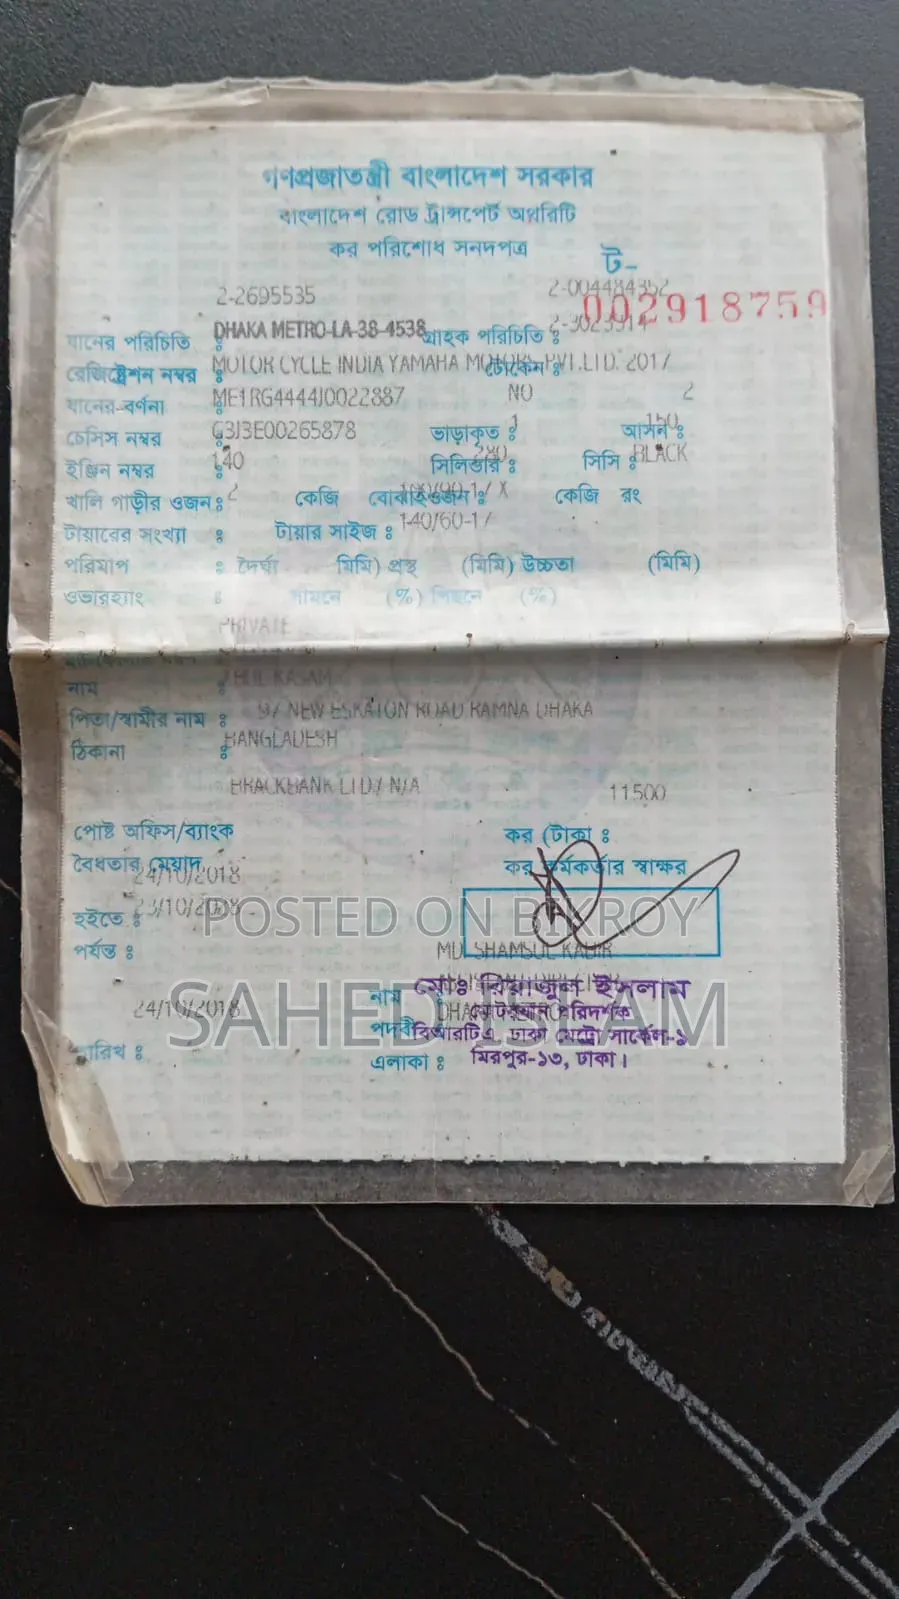 গণপ্রজাতন্ত্রী বাংলাদেশ সরকার
বাংলাদেশ রোড ট্রান্সপোর্ট অথরিটি
কর পরিশোধ সনদপত্র
ট-
2-2695535 2-004484352
002918759
যানের পরিচিতি : DHAKA METRO-LA-38-4538 গ্রাহক পরিচিতি :
রেজিষ্ট্রেশন নম্বর : MOTOR CYCLE INDIA YAMAHA টোকেন PVT.LTD. 2017
যানের-বর্ণনা : ME1RG4444J0022887 NO 2
চেসিস নম্বর : G3J3E00265878 ভাড়াকৃত : 1 আসন : 150
ইঞ্জিন নম্বর : 140 সিলিন্ডার : 280 সিসি : BLACK
খালি গাড়ীর ওজন : 2 কেজি বোঝাইওজন : কেজি রং
টায়ারের সংখ্যা : টায়ার সাইজ : 140/60-17
পরিমাপ : দৈর্ঘ্য মিমি) প্রস্থ (মিমি) উচ্চতা (মিমি)
ওভারহ্যাং : সামনে (%) পিছনে (%)
PRIVATE
নাম : KASAM
পিতা/স্বামীর নাম : 97 NEW ESKATON ROAD RAMNA DHAKA
ঠিকানা : BANGLADESH
BRACKBANK LTD/ N/A 11500
পোষ্ট অফিস/ব্যাংক কর (টাকা :
বৈধতার মেয়াদ কর কর্মকর্তার স্বাক্ষর
24/10/2018
হইতে :
POSTED ON BIKROY
পর্যন্ত : MD. SHAMSUL KABIR
নাম : মোঃ রিয়াজুল ইসলাম
24/10/2018
SAHED ISLAM
পদবী মোটরযান পরিদর্শক
বিআরটিএ, ঢাকা মেট্রো সার্কেল-১
তারিখ :
এলাকা : মিরপুর-১৩, ঢাকা।